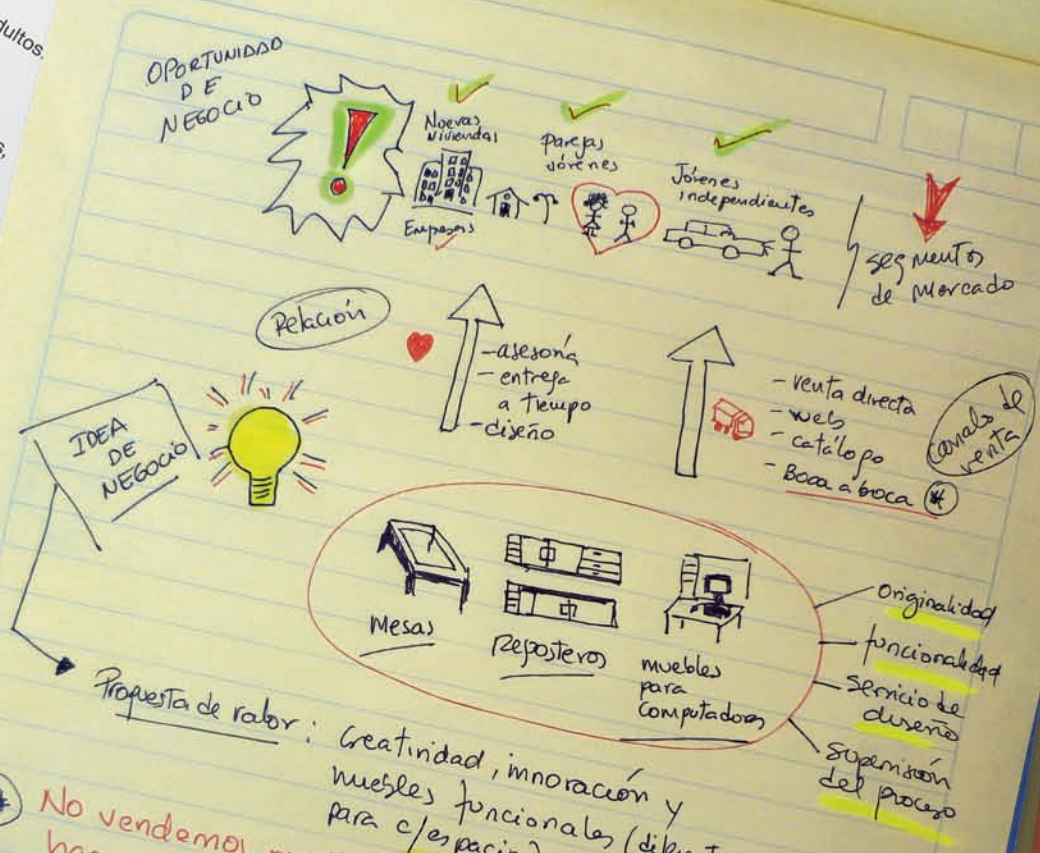 adultos.
OPORTUNIDAD
DE
NEGOCIO
!
Nuevas
viviendas
Empresas
Parejas
Jóvenes
Jóvenes
independientes
segmentos
de mercado
Relación
-asesoría
-entrega
a tiempo
-diseño
-venta directa
-web
-catálogo
-Boca a boca *
canales de
venta
IDEA
DE
NEGOCIO
Mesas
Reposteros
muebles
para
computadoras
originalidad
funcionalidad
servicio de
diseño
supervisión
del proceso
Propuesta de valor: Creatividad, innovación y
muebles funcionales
para c/espacio)
No vendemos